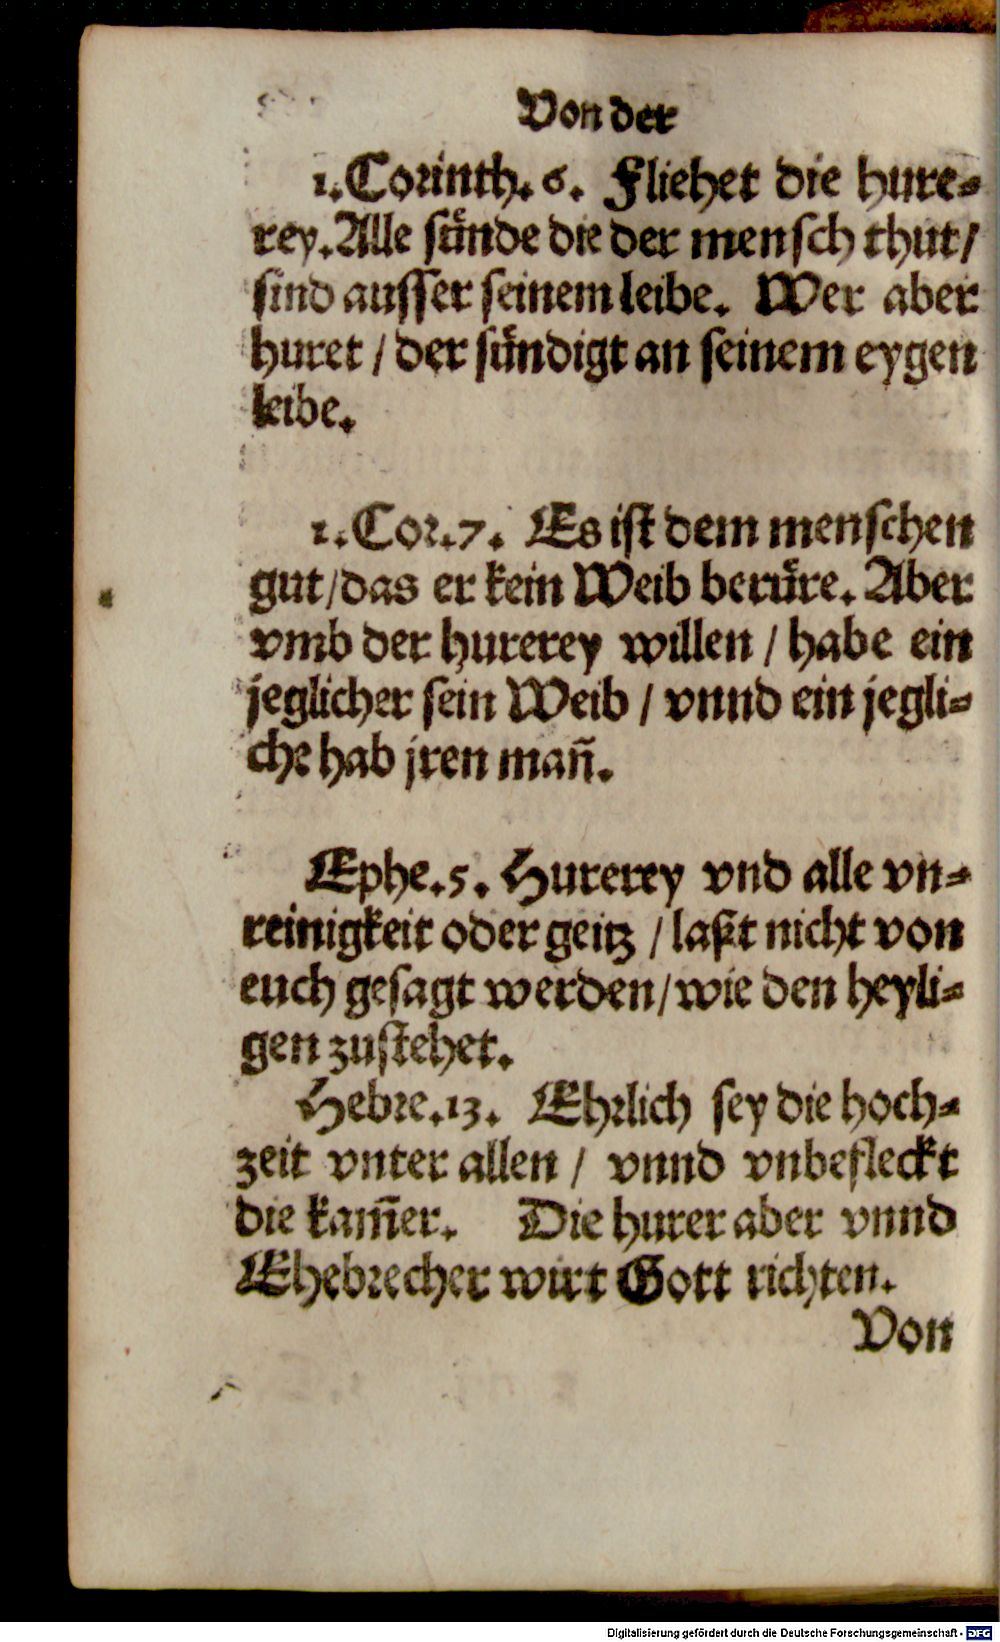 Von der
1. Corinth. 6. Fliehet die hure-
rey. Alle sünde die der mensch thut/
sind ausser seinem leibe. Wer aber
huret / der sündigt an seinem eygen
leibe.
1. Cor. 7. Es ist dem menschen
gut/das er kein Weib berüre. Aber
vmb der hurerey willen / habe ein
jeglicher sein Weib / vnnd ein jegli-
che hab jren mañ.
Ephe. 5. Hurerey vnd alle vn-
reinigkeit oder geitz / laßt nicht von
euch gesagt werden/wie den heyli-
gen zustehet.
Hebre. 13. Ehrlich sey die hoch-
zeit vnter allen / vnnd vnbefleckt
die kam̃er. Die hurer aber vnnd
Ehebrecher wirt Gott richten.
Von
Digitalisierung gefördert durch die Deutsche Forschungsgemeinschaft - DFG